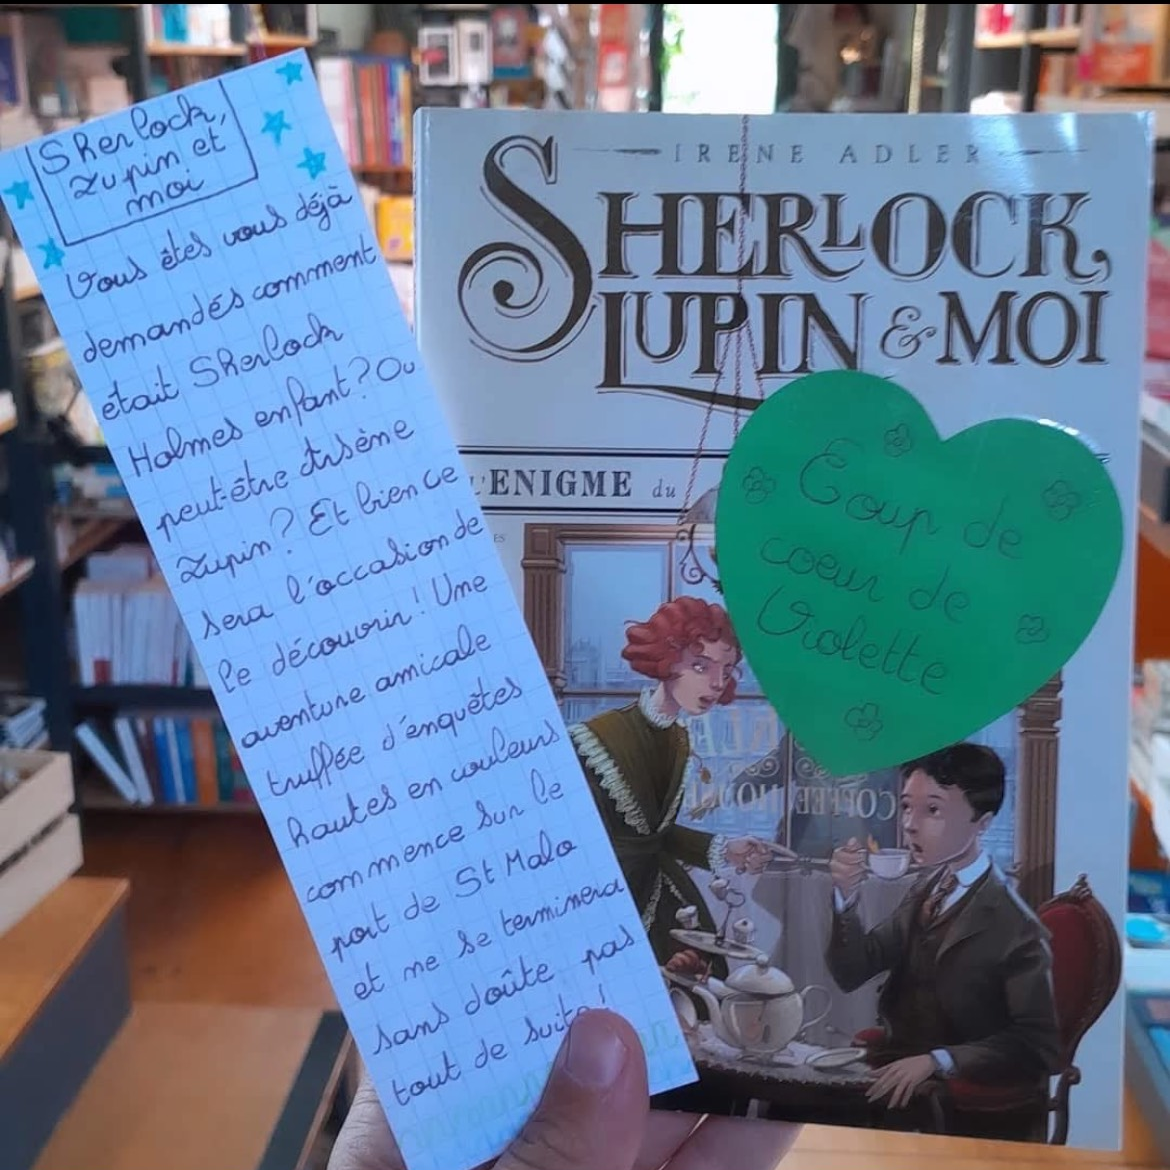 Sherlock,
Lupin et
moi
Vous êtes vous déjà
demandés comment
était Sherlock
Holmes enfant ? Ou
peut-être Arsène
Lupin ? Et bien ce
sera l'occasion de
le découvrir ! Une
aventure amicale
truffée d'enquêtes
hautes en couleurs
commence sur le
port de St Malo
et ne se terminera
sans doûte pas
tout de suite !
IRENE ADLER
SHERLOCK,
LUPIN & MOI
L'ENIGME du
Coup de
coeur de
Violette
COFFEE HOUSE